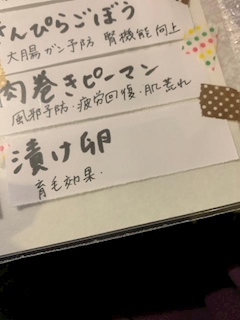 んぴらごぼう
大腸ガン予防 腎機能向上
肉巻きピーマン
風邪予防・疲労回復・肌荒れ
漬け卵
育毛効果.